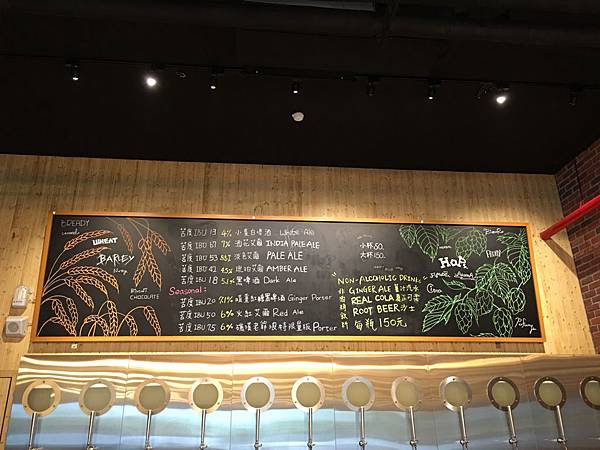 BREADY
WHEAT
BARLEY
BISCUIT
CHOCOLATE
苦度IBU 13 4% 小麥白啤酒 White Ale
苦度IBU 67 7% 酒花艾爾 INDIA PALE ALE
苦度IBU 53 淡色艾爾 PALE ALE
苦度IBU 42 4.5% 琥珀艾爾 AMBER ALE
苦度IBU 18 黑啤酒 Dark Ale
Seasonal:
苦度IBU 20 7.1% 黑糖薑啤酒 Ginger Porter
苦度IBU 50 6% 火紅艾爾 Red Ale
苦度IBU 75 6% 特限量版 Porter
小杯 80.
大杯 150.
NON-ALCOHOLIC DRINK
非酒精飲料
GINGER ALE 薑汁汽水
REAL COLA 真正可樂
ROOT BEER 沙士
每瓶 150元
HOP
Fruity
Citrus